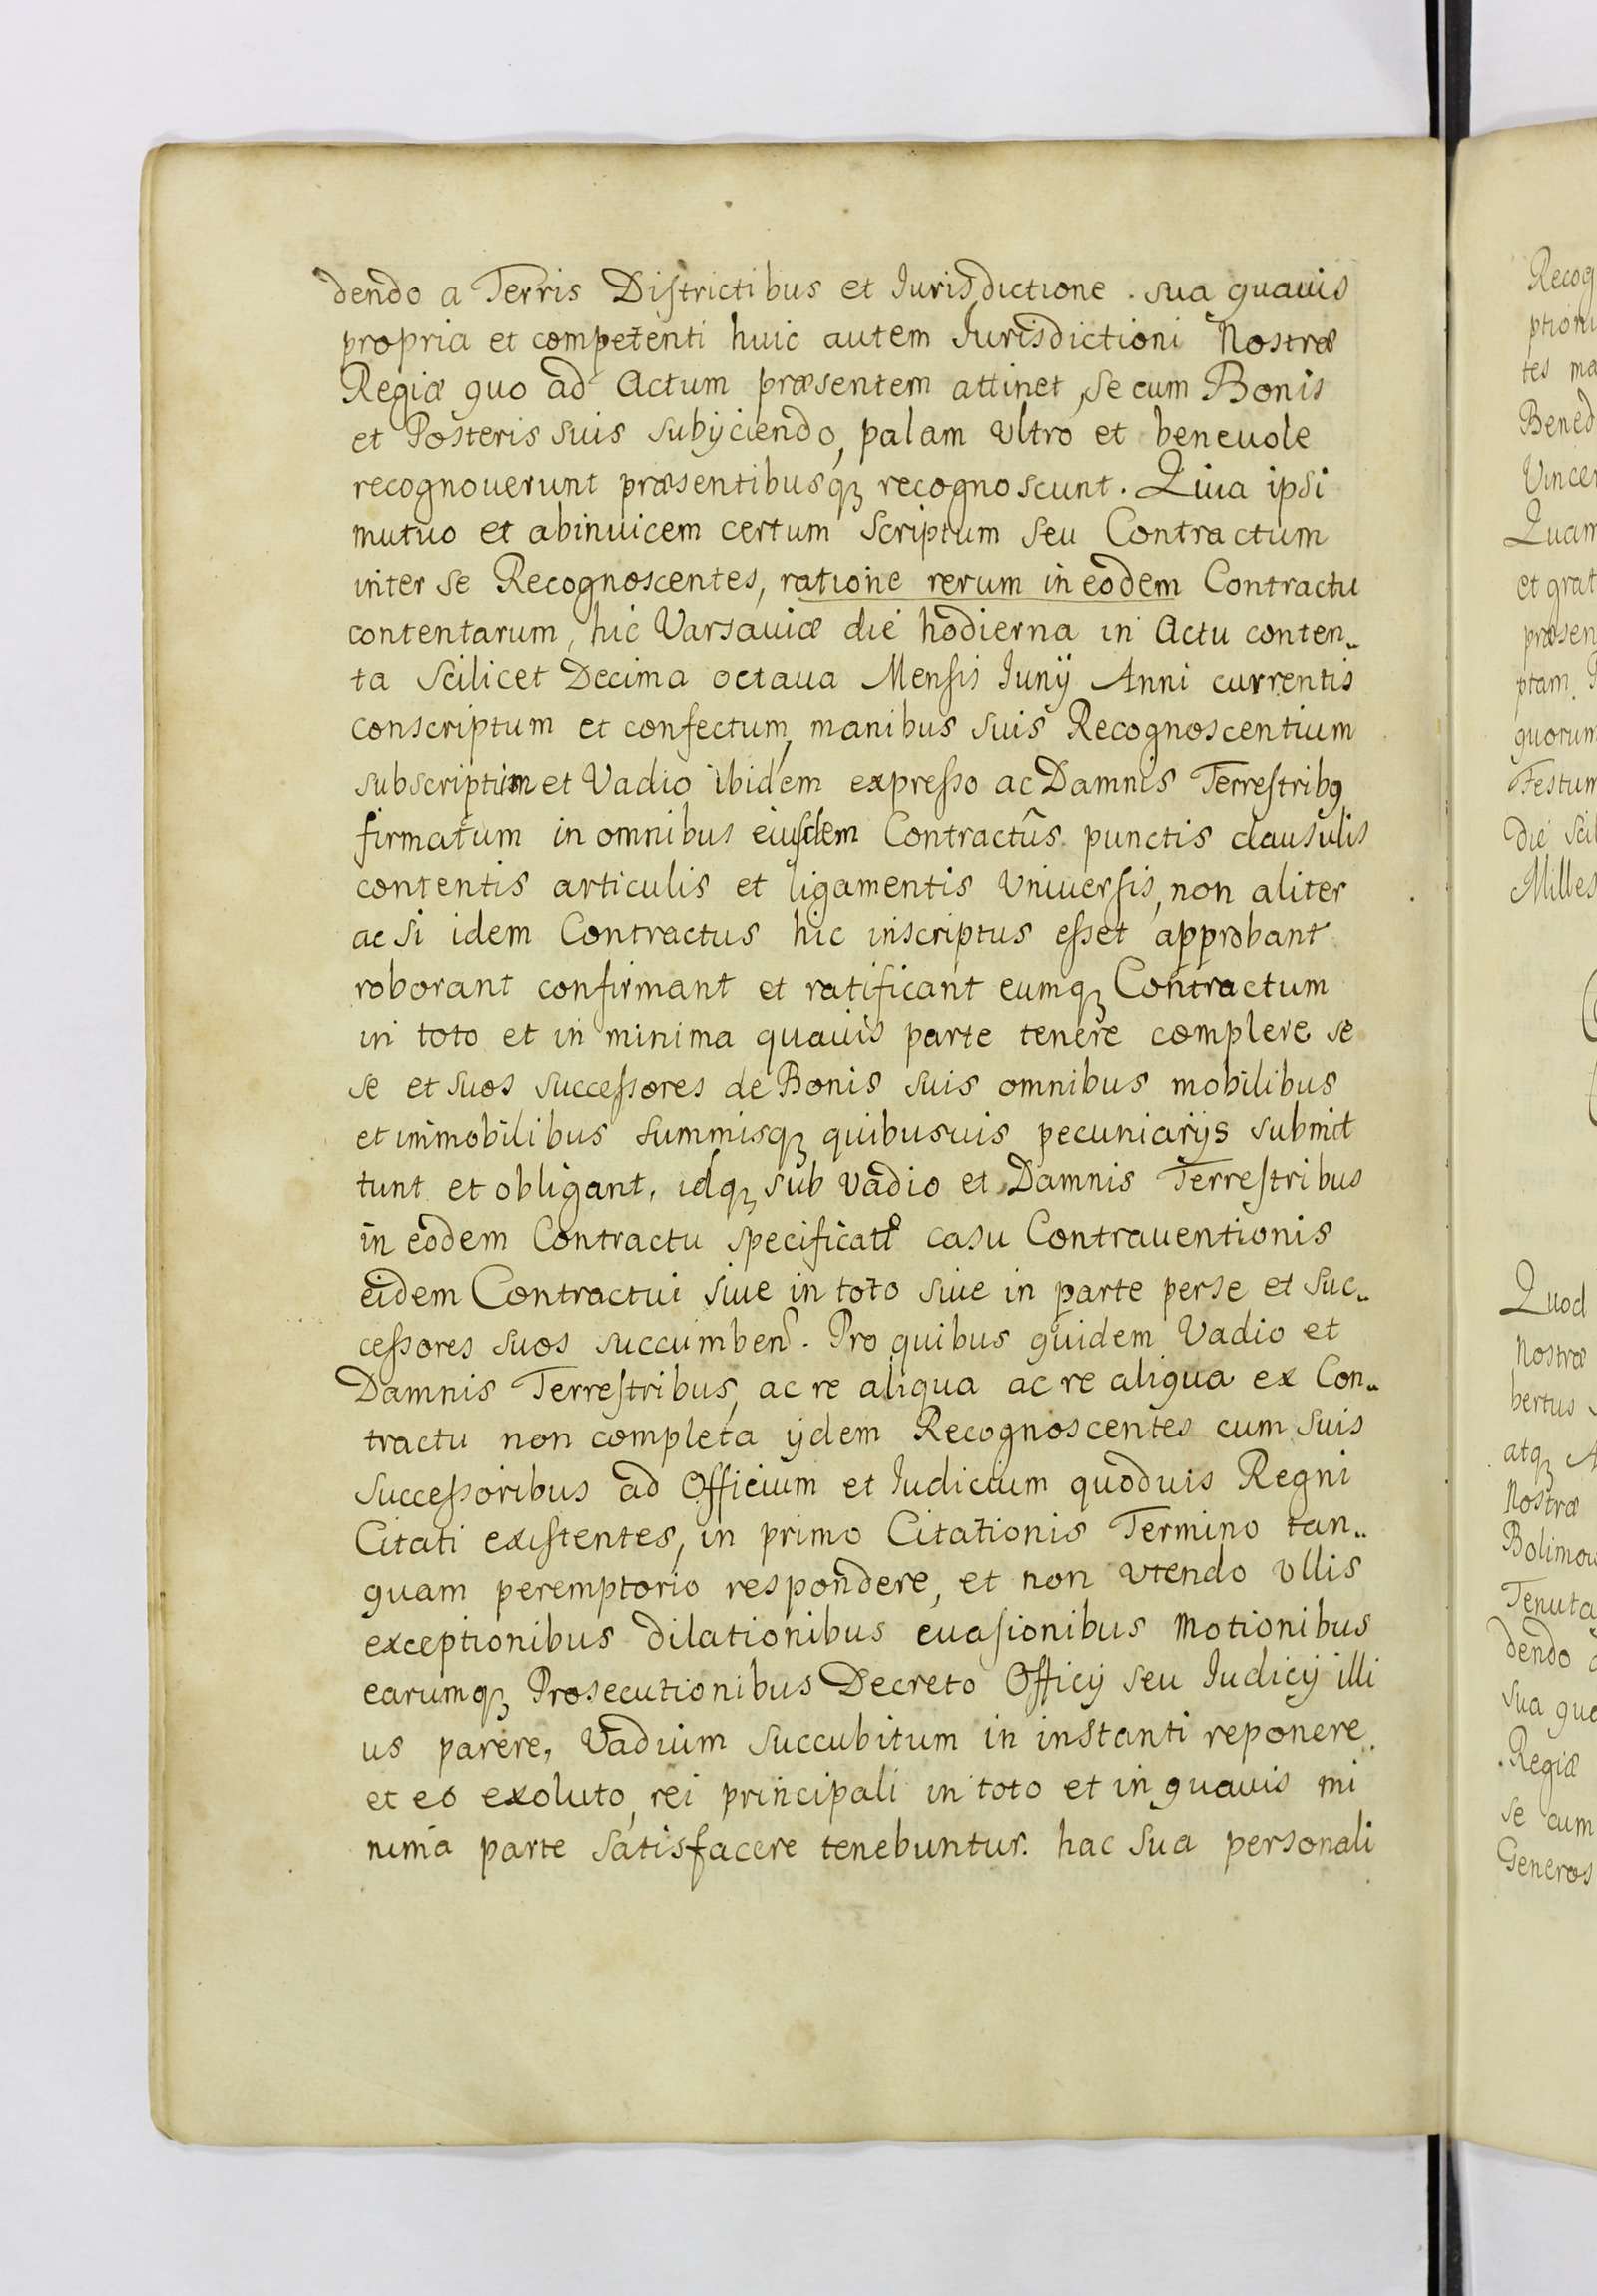 dendo a Terris Districtibus et Iurisdictione . sua quauis
propria et competenti huic autem Iurisdictioni Nostræ
Regiæ quo ad Actum præsentem attinet, se cum Bonis
et Posteris suis subijciendo, palam vltro et beneuole
recognouerunt præsentibusqꝫ recognoscunt. Quia ipsi
mutuo et abinuicem certum scriptum seu Contractum
inter se Recognoscentes, ratione rerum in eodem Contractu
contentarum, hic Varsauiæ die hodierna in Actu conten„
ta scilicet Decima octaua Mensis Iunij Anni currentis
conscriptum et confectum, manibus suis Recognoscentium
subscriptum et Vadio ibidem expresso ac Damnis Terrestribꝯ
firmatum in omnibus eiusdem Contractûs punctis clausulis
contentis articulis et ligamentis Vniuersis, non aliter
ac si idem Contractus hic inscriptus esset approbant
roborant confirmant et ratificant eumqꝫ Contractum
in toto et in minima quauis parte tenere complere se
se et suos successores de Bonis suis omnibus mobilibus
et immobilibus summisqꝫ quibusuis pecuniarijs submit
tunt et obligant, idqꝫ sub vadio et Damnis Terrestribus
in eodem Contractu specificatꝭ casu Contrauentionis
eidem Contractui siue in toto siue in parte perse et suc„
cessores suos succumbenꝭ. Pro quibus quidem Vadio et
Damnis Terrestribus, ac re aliqua ac re aliqua ex Con„
tractu non completa ijdem Recognoscentes cum suis
successoribus ad Officium et Iudicium quoduis Regni
Citati existentes, in primo Citationis Termino tan„
quam peremptorio respondere, et non vtendo vllis
exceptionibus dilationibus euasionibus motionibus
earumqꝫ Prosecutionibus Decreto Officij seu Iudicij illi
us parere, Vadium succubitum in instanti reponere
et eo exoluto, rei principali in toto et in quauis mi
nima parte satisfacere tenebuntur. hac sua personali
Recog
ptioni
tes ma
Bened
Vincen
Quam
et grat
præsen
ptam.
quorum
Festum
die scil
Milles
Quod
Nostræ
bertus
atqꝫ
Nostræ
Bolimou
Tenuta
dendo
sua qua
Regiæ
se cum
Generos